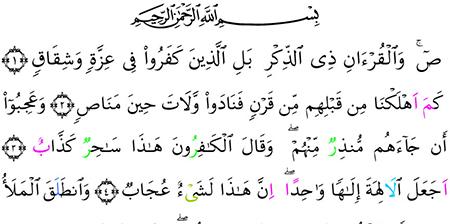 بِسْمِ اللَّهِ الرَّحْمَٰنِ الرَّحِيمِ
صٓ ۚ وَالْقُرْءَانِ ذِى الذِّكْرِ بَلِ الَّذِينَ كَفَرُوا۟ فِى عِزَّةٍ وَشِقَاقٍ ﴿١﴾
كَمَ اَهْلَكْنَا مِن قَبْلِهِم مِّن قَرْنٍ فَنَادَوا۟ وَّلَاتَ حِينَ مَنَاصٍ ﴿٢﴾ وَعَجِبُوٓا۟
أَن جَآءَهُم مُّنذِرٌ مِّنْهُمْ ۖ وَقَالَ الْكَٰفِرُونَ هَٰذَا سَٰحِرٌ كَذَّابٌ ﴿٣﴾
اَجَعَلَ اَلَالِهَةَ إِلَٰهًا وَٰحِدًا ۖ اِنَّ هَٰذَا لَشَىْءٌ عُجَابٌ ﴿٤﴾ وَانطَلَقَ الْمَلَأُ